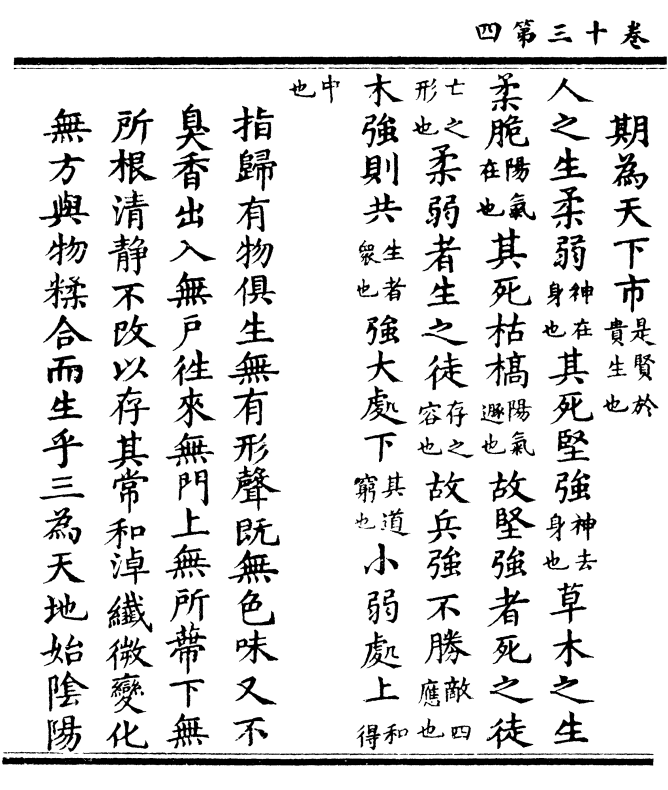 卷十三第四
期為天下市是賢於貴生也
人之生柔弱神在身也其死堅強神去身也草木之生
柔脆陽氣在也其死枯槁陽氣遯也故堅強者死之徒
亡之形也柔弱者生之徒存之容也故兵強不勝敵四應也
木強則共生者衆也強大處下其道窮也小弱處上和得
中也
指歸有物俱生無有形聲既無色味又不
臭香出入無戶徃來無門上無所蔕下無
所根清静不改以存其常和淖纖微變化
無方與物糅合而生乎三為天地始陰陽